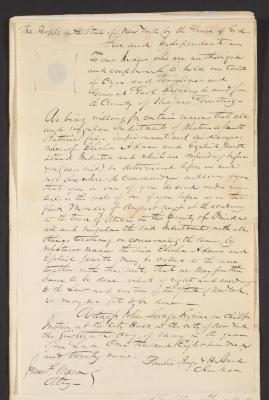 The People of the State of New York by the Grace of God
Free and Independent
To our Judges who are authorized
and empowered to hold our Courts
of Oyer and Terminer and
General Gaol Delivery in and for
the County of Niagara Greeting
We being willing for certain reasons that all
and singular Indictments of
whereof
Elisha Adams and Jewett
stand Indicted and which are depending before
you (as is said) be determined before and
not elsewhere do Command you and every of you
that you or one of you do send under your
seal or the seals of one of you before us on the
first Monday of August next at the academy
in the town of Utica in the County of Oneida
all and singular the said Indictments with all
things touching or concerning the same by
whatever names the said Elisha Adams and
Jewett may be called in the same
together with this writ that we may further
cause to be done what of right and according
to the law and custom of the State of New York
we may see fit to be done
Witness John Savage Esquire Chief
Justice at the City Hall of the City of New York
the day of May in the year of
our Lord One thousand Eight hundred
and twenty nine
Clerks
Atty